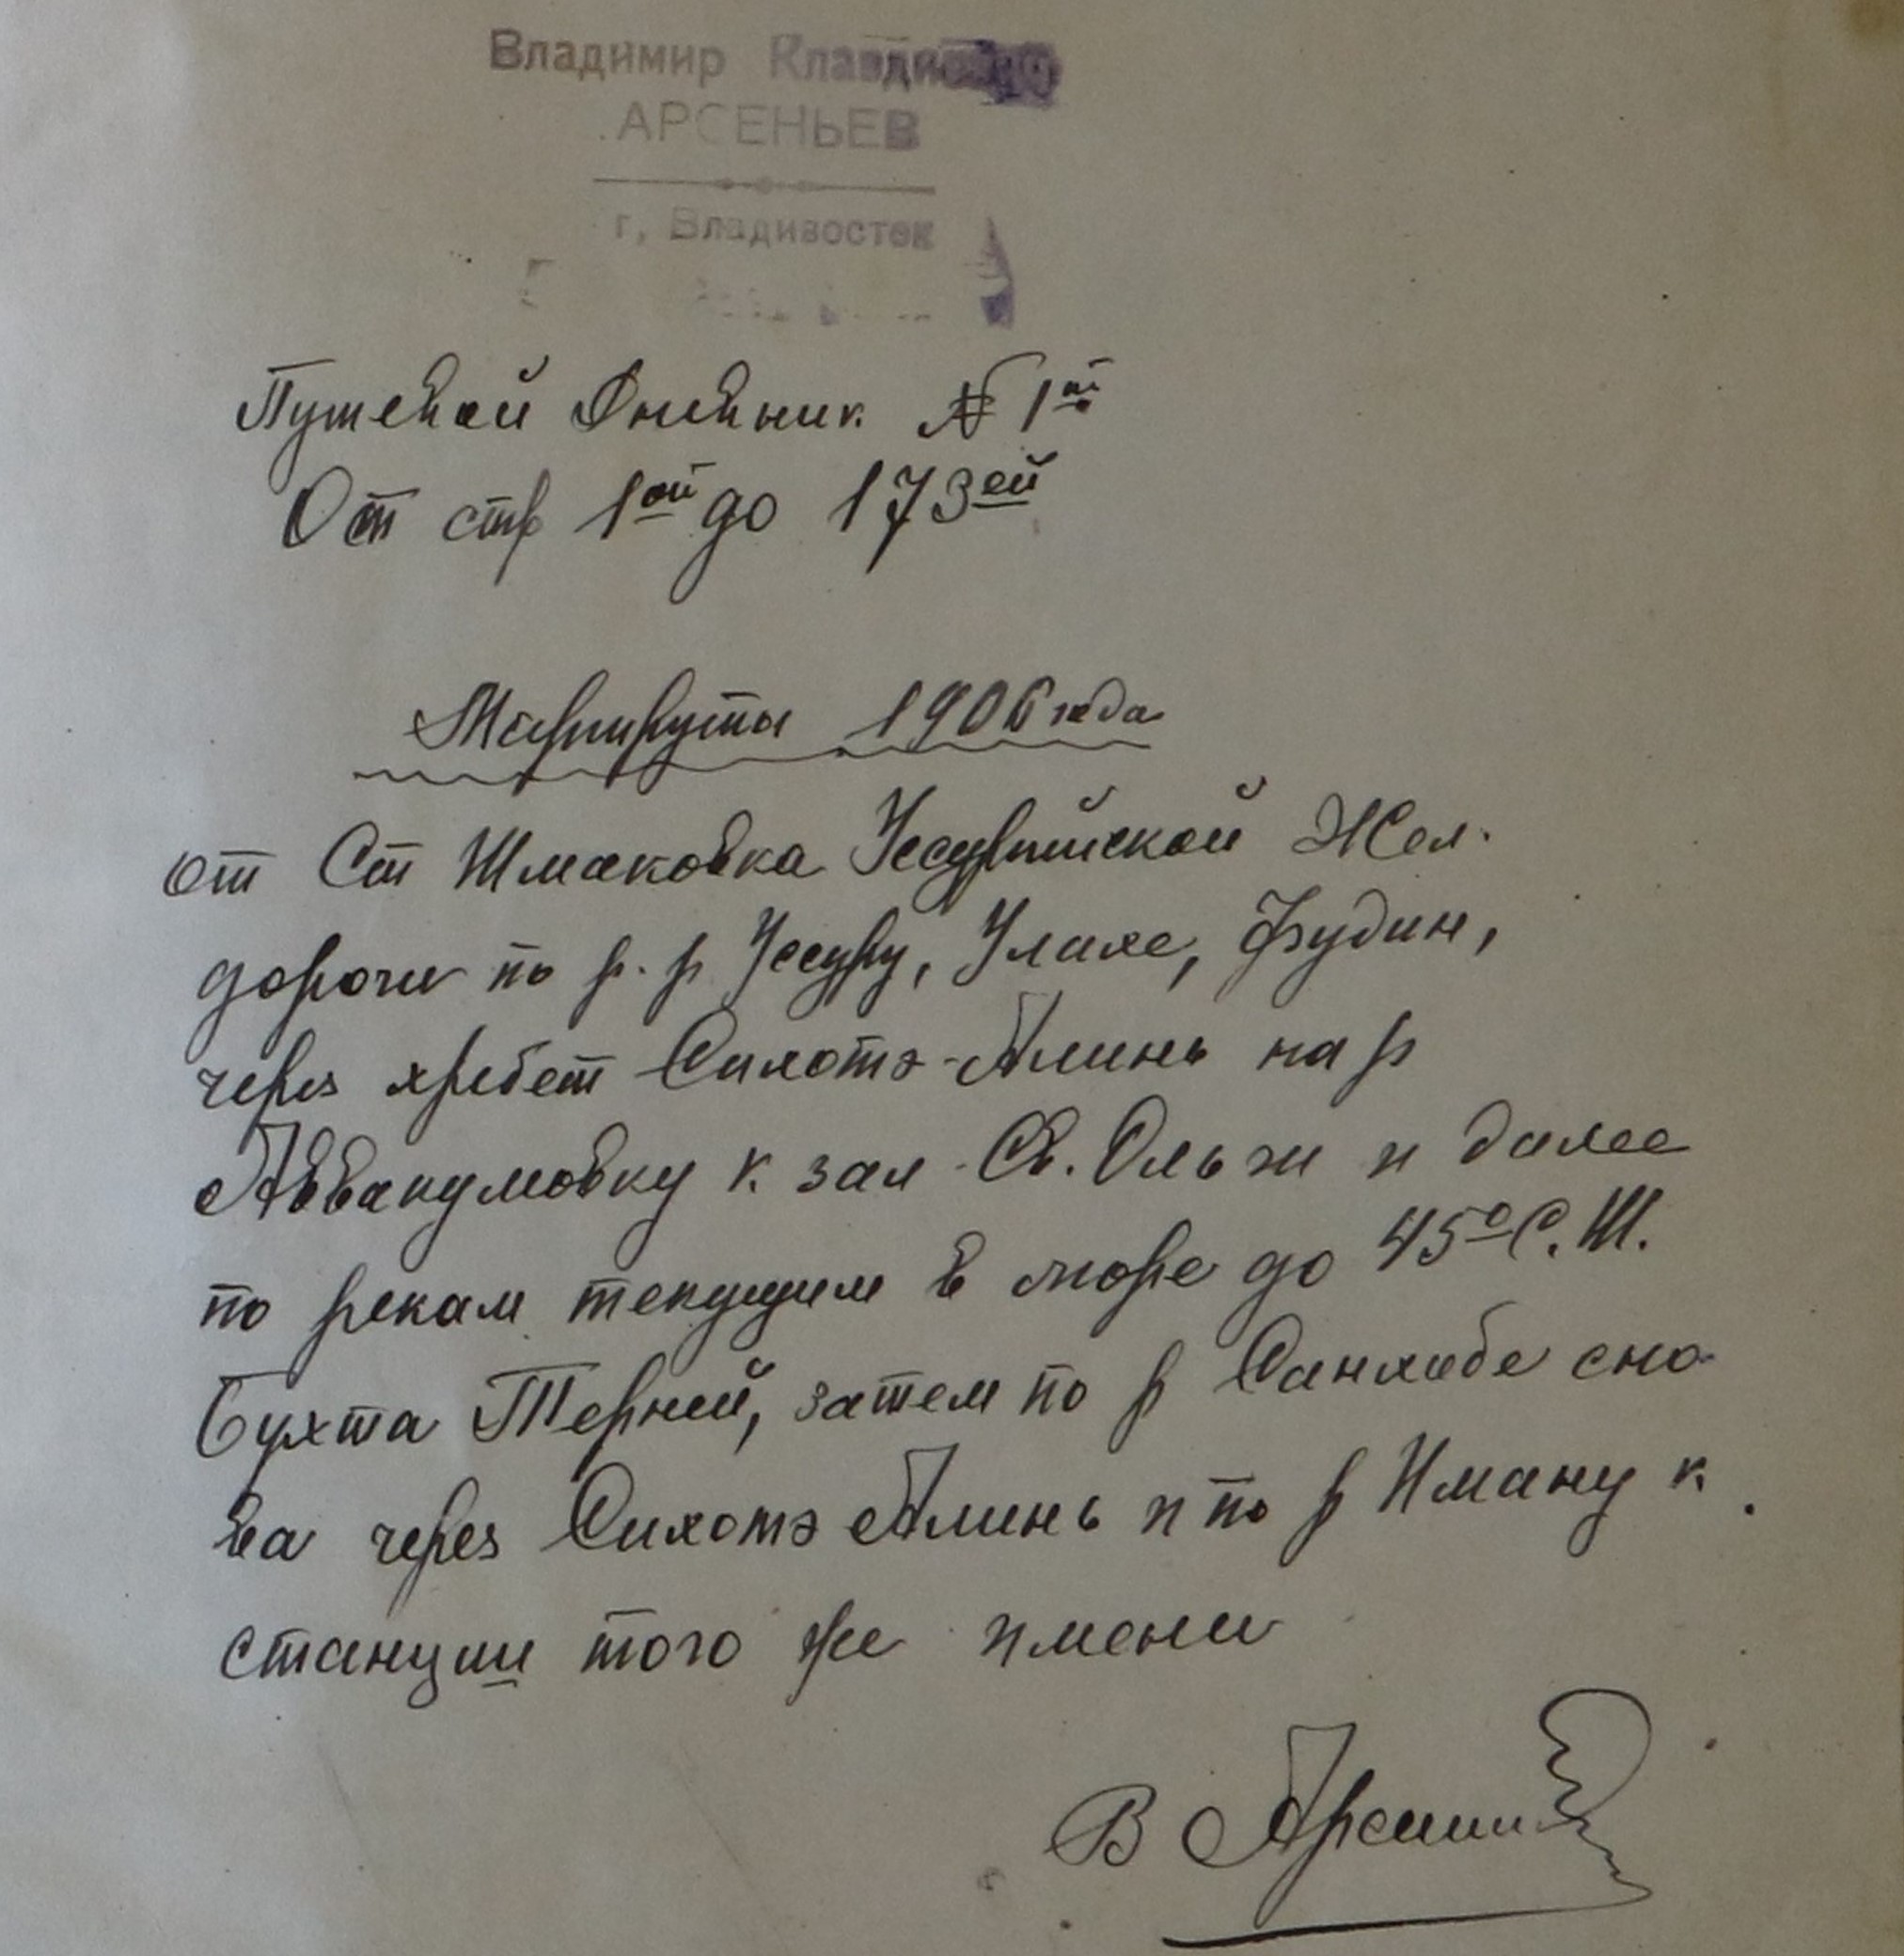 Владимир Клавдиев
АРСЕНЬЕВ
г, Владивосток
Путевой Дневник № 1ый
От стр 1ой до 173ей
Маршруты 1906 года
от Ст Шмаковка Уссурийской Жел.
дороги по р. р Уссури, Улахе, Фудин,
через хребет Сихотэ-Алинь на р
Аввакумовку к зал. Св. Ольги и далее
по рекам текущим в море до 45° С. Ш.
Бухта Терней, затем по р Санхобе сно-
ва через Сихотэ Алинь и по р Иману к
станции того же имени
В Арсеньев